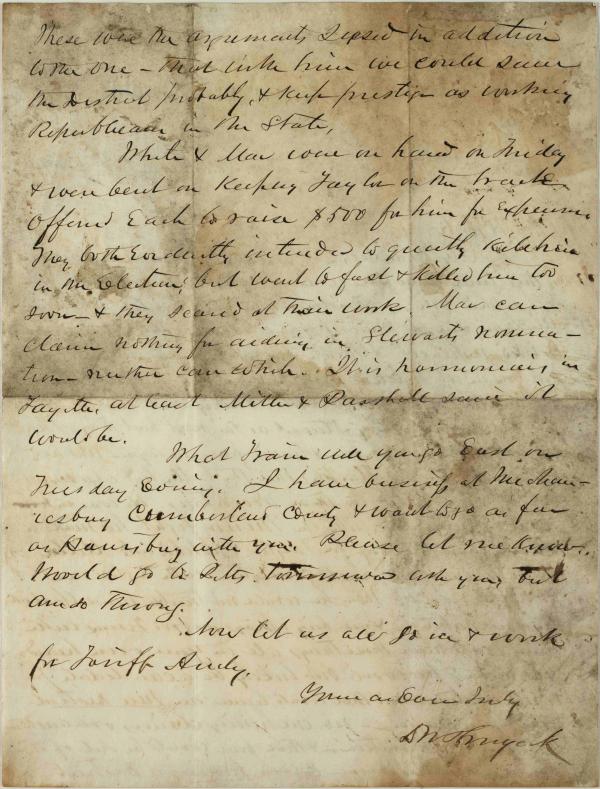 These were the arguments I used in addition
to the one - that with him we could save
the District probably, & keep prestige as working
Republicans in the State,
White & Mac were on hand on Friday
& were bent on keeping Taylor on the track
offered Each to raise $500 for him for Expenses
They both Evidently intended to quietly kill him
in the Election, but went to fast & killed him too
soon - & they scared at their work. Mac can
claim nothing for aiding in Stewarts nomina-
tion - neither can White. It is harmonious in
Fayette, at least Miller & said it
would be.
What Train will you go East on
Tuesday Evening. I have business at Mechan-
icsburg Cumberland County & want to go as far
as Harrisburg with you. Please let me know.
Would go to Pitts tomorrow with you, but
am so
Now let us all go in & work
for Tariff Andy.
Yours as Ever Truly